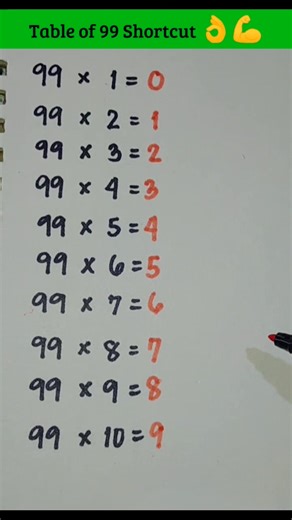 Table of 99 Shortcut 👌💪
99 × 1 = 0
99 × 2 = 1
99 × 3 = 2
99 × 4 = 3
99 × 5 = 4
99 × 6 = 5
99 × 7 = 6
99 × 8 = 7
99 × 9 = 8
99 × 10 = 9